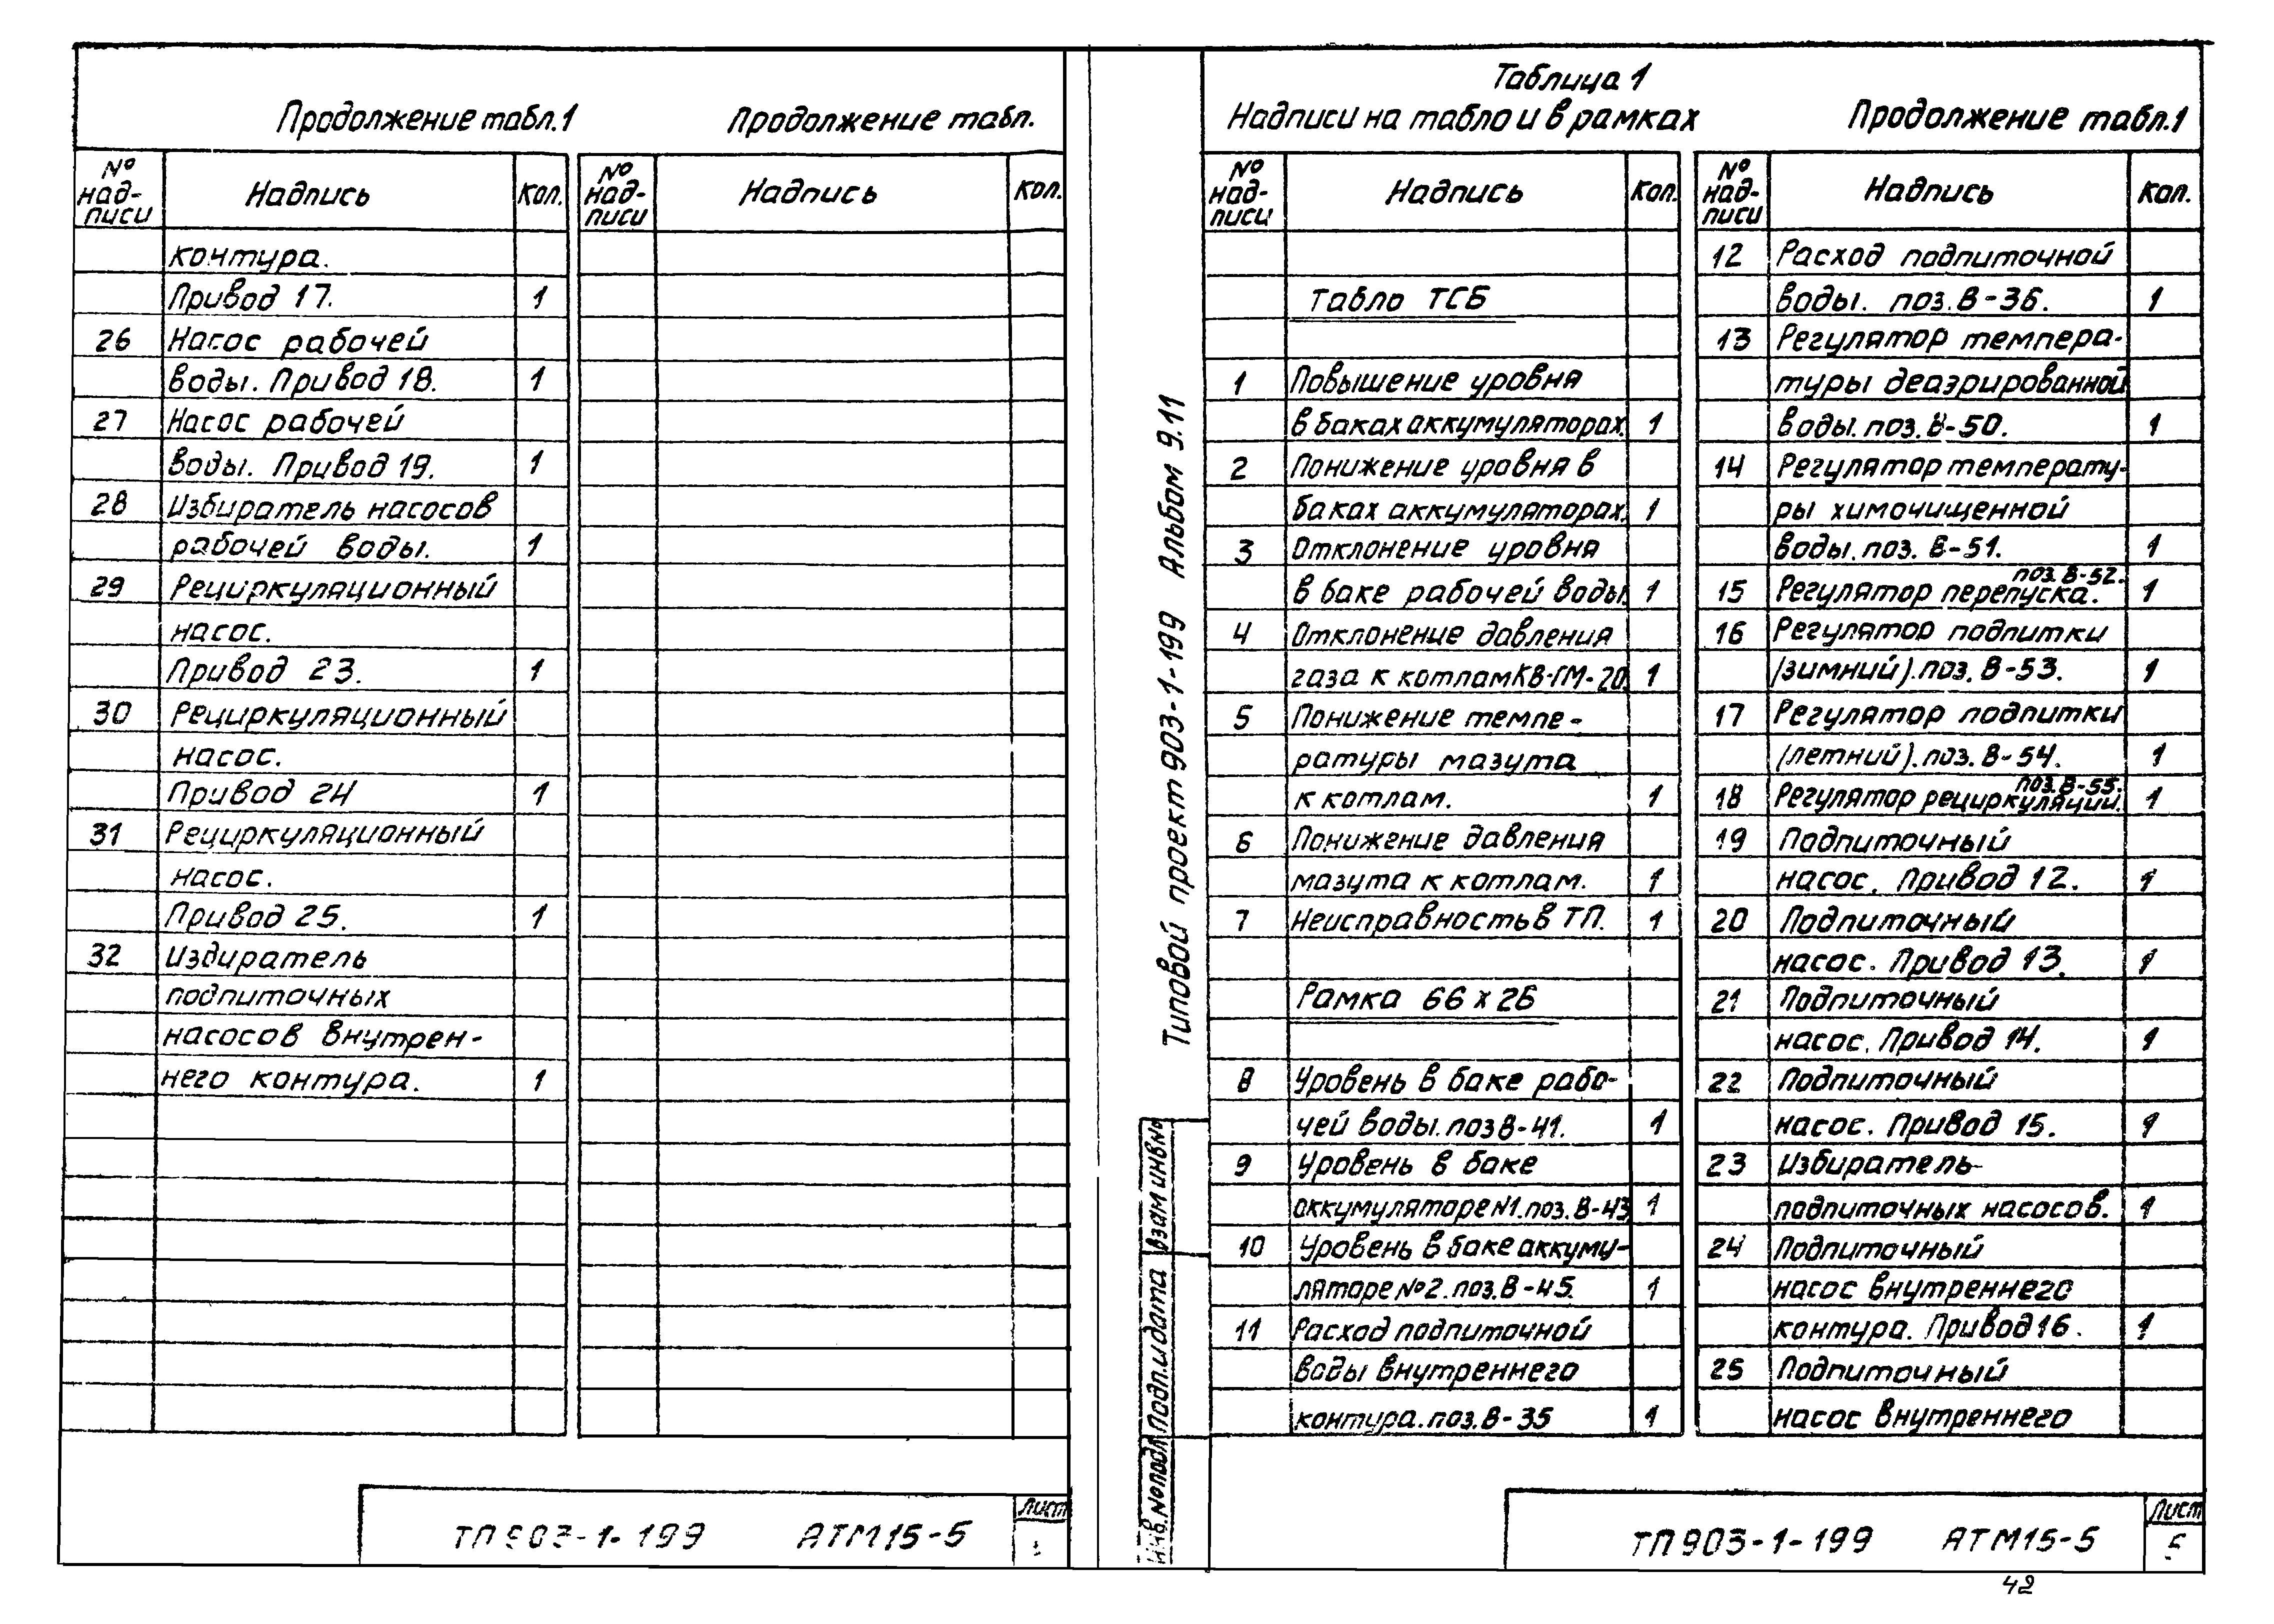 Продолжение табл.1
№ над-писи Надпись Кол.
контура.
Привод 17. 1
26 Насос рабочей
воды. Привод 18. 1
27 Насос рабочей
воды. Привод 19. 1
28 Избиратель насосов
рабочей воды. 1
29 Рециркуляционный
насос.
Привод 23. 1
30 Рециркуляционный
насос.
Привод 24 1
31 Рециркуляционный
насос.
Привод 25. 1
32 Избиратель
подпиточных
насосов внутрен-
него контура. 1
Продолжение табл.
№ над-писи Надпись Кол.
ТП 903-1-199 АТМ15-5
Лист
Типовой проект 903-1-199 Альбом 9.11
Инв.№подл Подп.и дата Взам инв№
Таблица 1
Надписи на табло и в рамках
№ над-писи Надпись Кол.
Табло ТСБ
1 Повышение уровня
в баках аккумуляторах. 1
2 Понижение уровня в
баках аккумуляторах. 1
3 Отклонение уровня
в баке рабочей воды. 1
4 Отклонение давления
газа к котлам КВ-ГМ-20. 1
5 Понижение темпе-
ратуры мазута
к котлам. 1
6 Понижение давления
мазута к котлам. 1
7 Неисправность в ТП. 1
Рамка 66 x 26
8 Уровень в баке рабо-
чей воды. поз В-41. 1
9 Уровень в баке
аккумуляторе №1. поз. В-43 1
10 Уровень в баке аккуму-
ляторе №2. поз. В-45. 1
11 Расход подпиточной
воды внутреннего
контура. поз. В-35 1
Продолжение табл.1
№ над-писи Надпись Кол.
12 Расход подпиточной
воды. поз. В-36. 1
13 Регулятор темпера-
туры деаэрированной
воды. поз. В-50. 1
14 Регулятор температу-
ры химочищенной
воды. поз. В-51. 1
15 Регулятор перепуска. поз. В-52. 1
16 Регулятор подпитки
(зимний). поз. В-53. 1
17 Регулятор подпитки
(летний). поз. В-54. 1
18 Регулятор рециркуляции. поз. В-55. 1
19 Подпиточный
насос. Привод 12. 1
20 Подпиточный
насос. Привод 13. 1
21 Подпиточный
насос. Привод 14. 1
22 Подпиточный
насос. Привод 15. 1
23 Избиратель
подпиточных насосов. 1
24 Подпиточный
насос внутреннего
контура. Привод 16. 1
25 Подпиточный
насос внутреннего
ТП 903-1-199 АТМ15-5
Лист
5
42